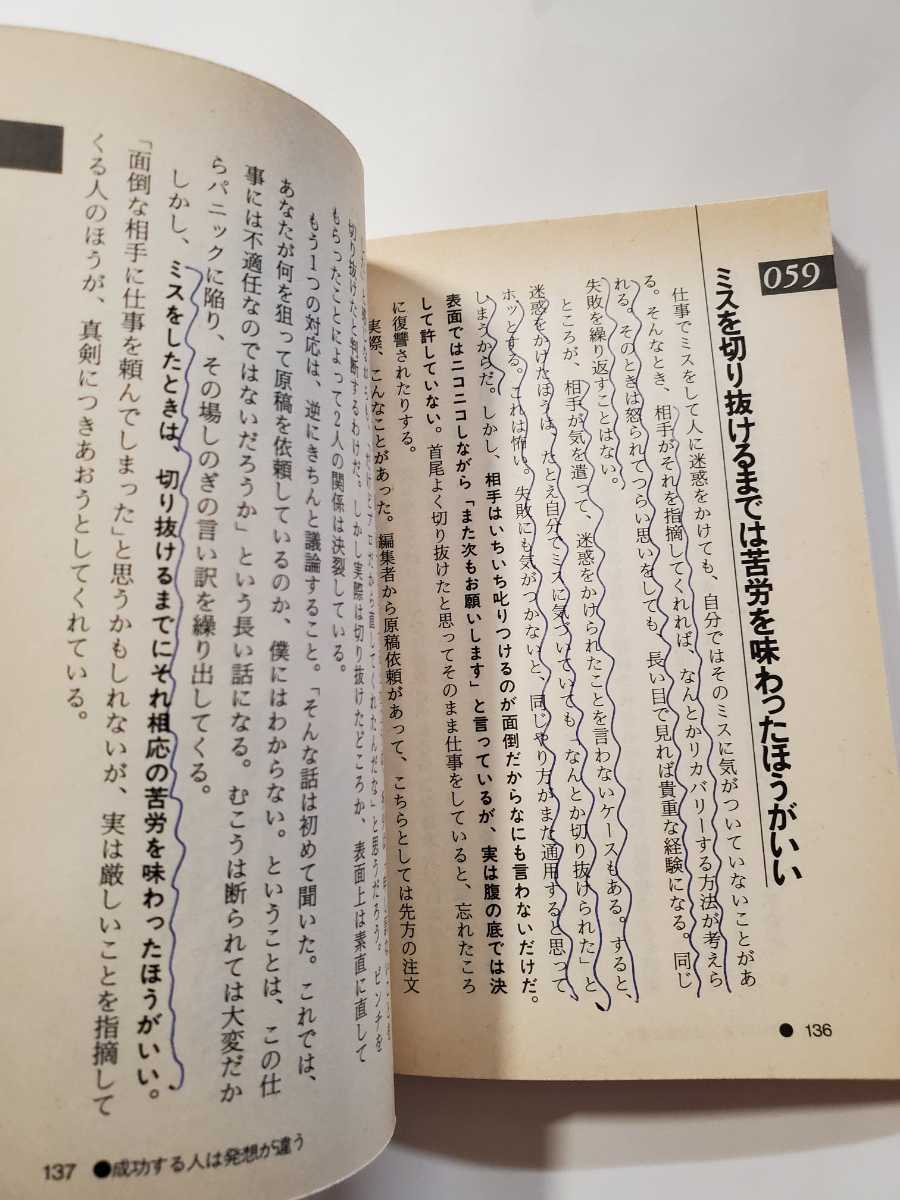 059
ミスを切り抜けるまでは苦労を味わったほうがいい
仕事でミスをして人に迷惑をかけても、自分ではそのミスに気がついていないことがあ
る。そんなとき、相手がそれを指摘してくれれば、なんとかリカバリーする方法が考えら
れる。そのときは怒られてつらい思いをしても、長い目で見れば貴重な経験になる。同じ
失敗を繰り返すことはない。
ところが、相手が気を遣って、迷惑をかけられたことを言わないケースもある。すると、
迷惑をかけたほうは、たとえ自分でミスに気づいていても「なんとか切り抜けられた」と
ホッとする。これは怖い。失敗にも気がつかないと、同じやり方がまた通用すると思って
しまうからだ。しかし、相手はいちいち叱りつけるのが面倒だからなにも言わないだけだ。
表面ではニコニコしながら「また次もお願いします」と言っているが、実は腹の底では決
して許していない。首尾よく切り抜けたと思ってそのまま仕事をしていると、忘れたころ
に復讐されたりする。
実際、こんなことがあった。編集者から原稿依頼があって、こちらとしては先方の注文
136
だから直してくれたんだな」と思うだろう。ピンチを
切り抜けたと判断するわけだ。しかし実際は切り抜けたどころか、表面上は素直に直して
もらったことによって2人の関係は決裂している。
もう1つの対応は、逆にきちんと議論すること。「そんな話は初めて聞いた。これでは、
あなたが何を狙って原稿を依頼しているのか、僕にはわからない。ということは、この仕
事には不適任なのではないだろうか」という長い話になる。むこうは断られては大変だか
らパニックに陥り、その場しのぎの言い訳を繰り出してくる。
しかし、ミスをしたときは、切り抜けるまでにそれ相応の苦労を味わったほうがいい。
「面倒な相手に仕事を頼んでしまった」と思うかもしれないが、実は厳しいことを指摘して
くる人のほうが、真剣につきあおうとしてくれている。
137 ●成功する人は発想が違う